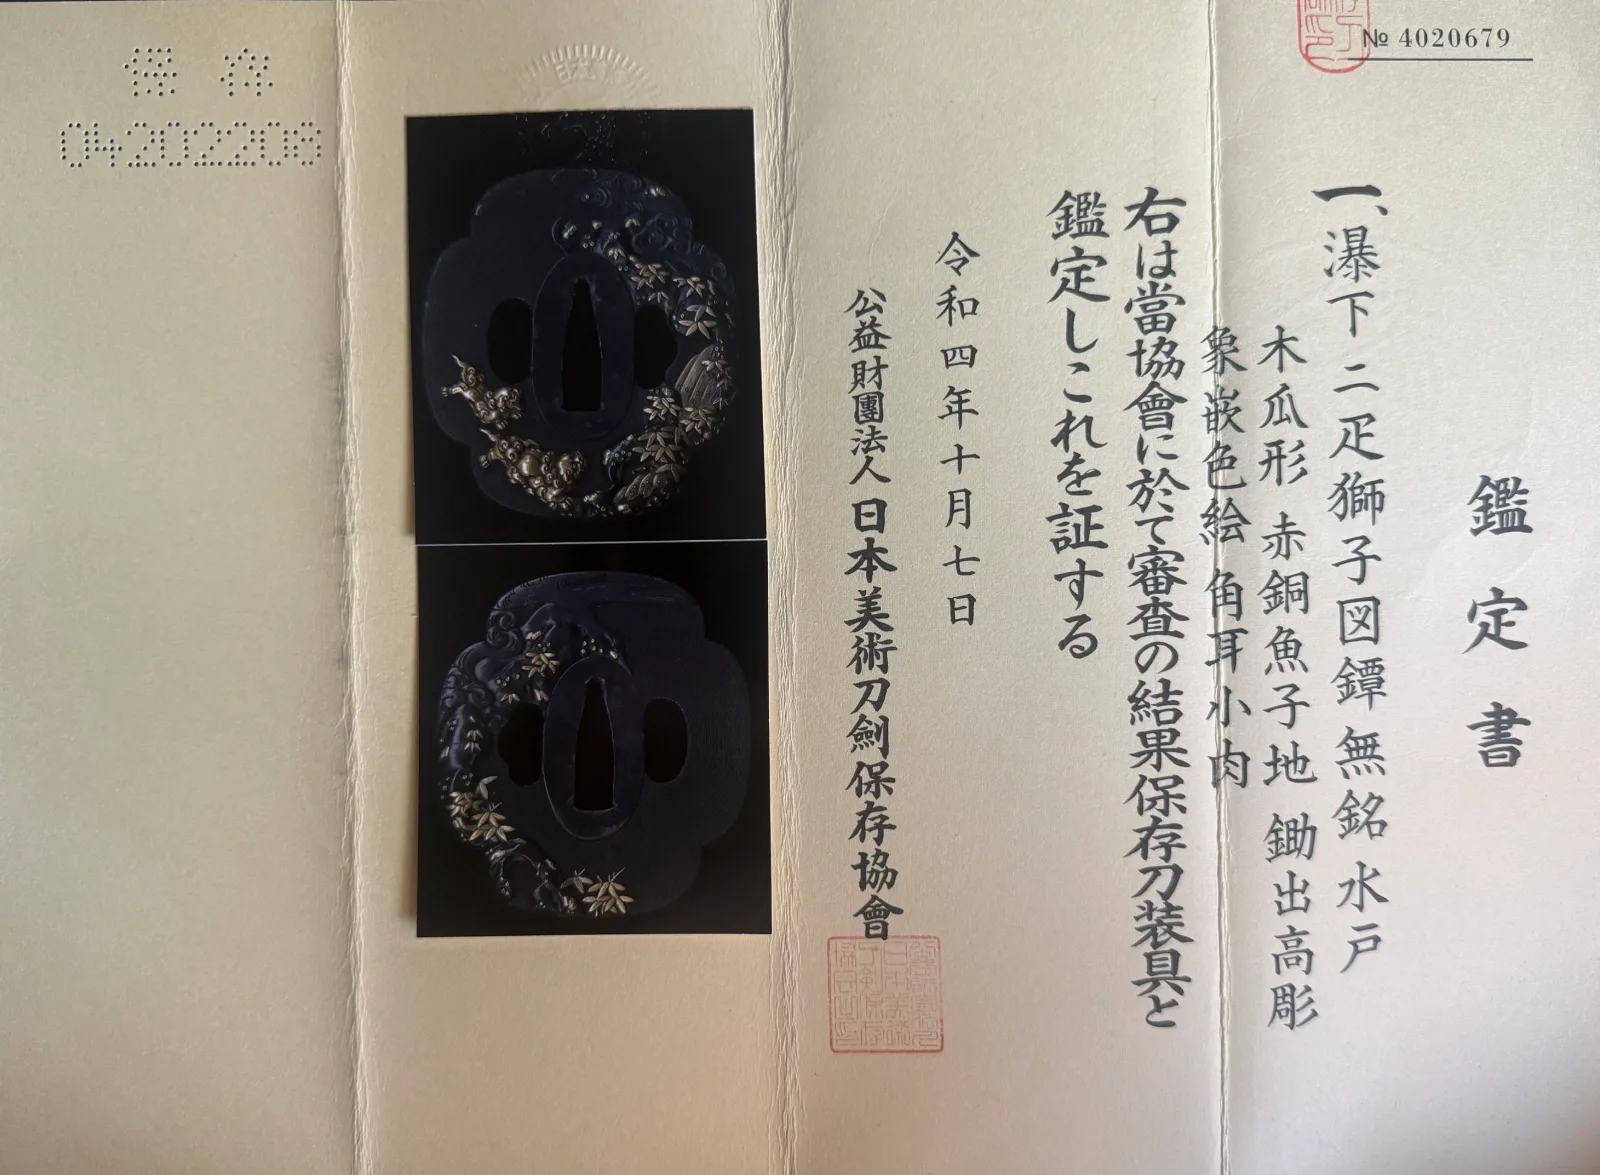 № 4020679
鑑定書
一、瀑下二疋獅子図鐔 無銘 水戸
木瓜形 赤銅魚子地 鋤出高彫
象嵌色絵 角耳小肉
右は當協會に於て審査の結果保存刀装具と
鑑定しこれを証する
令和四年十月七日
公益財團法人 日本美術刀劍保存協會
保存
04202208